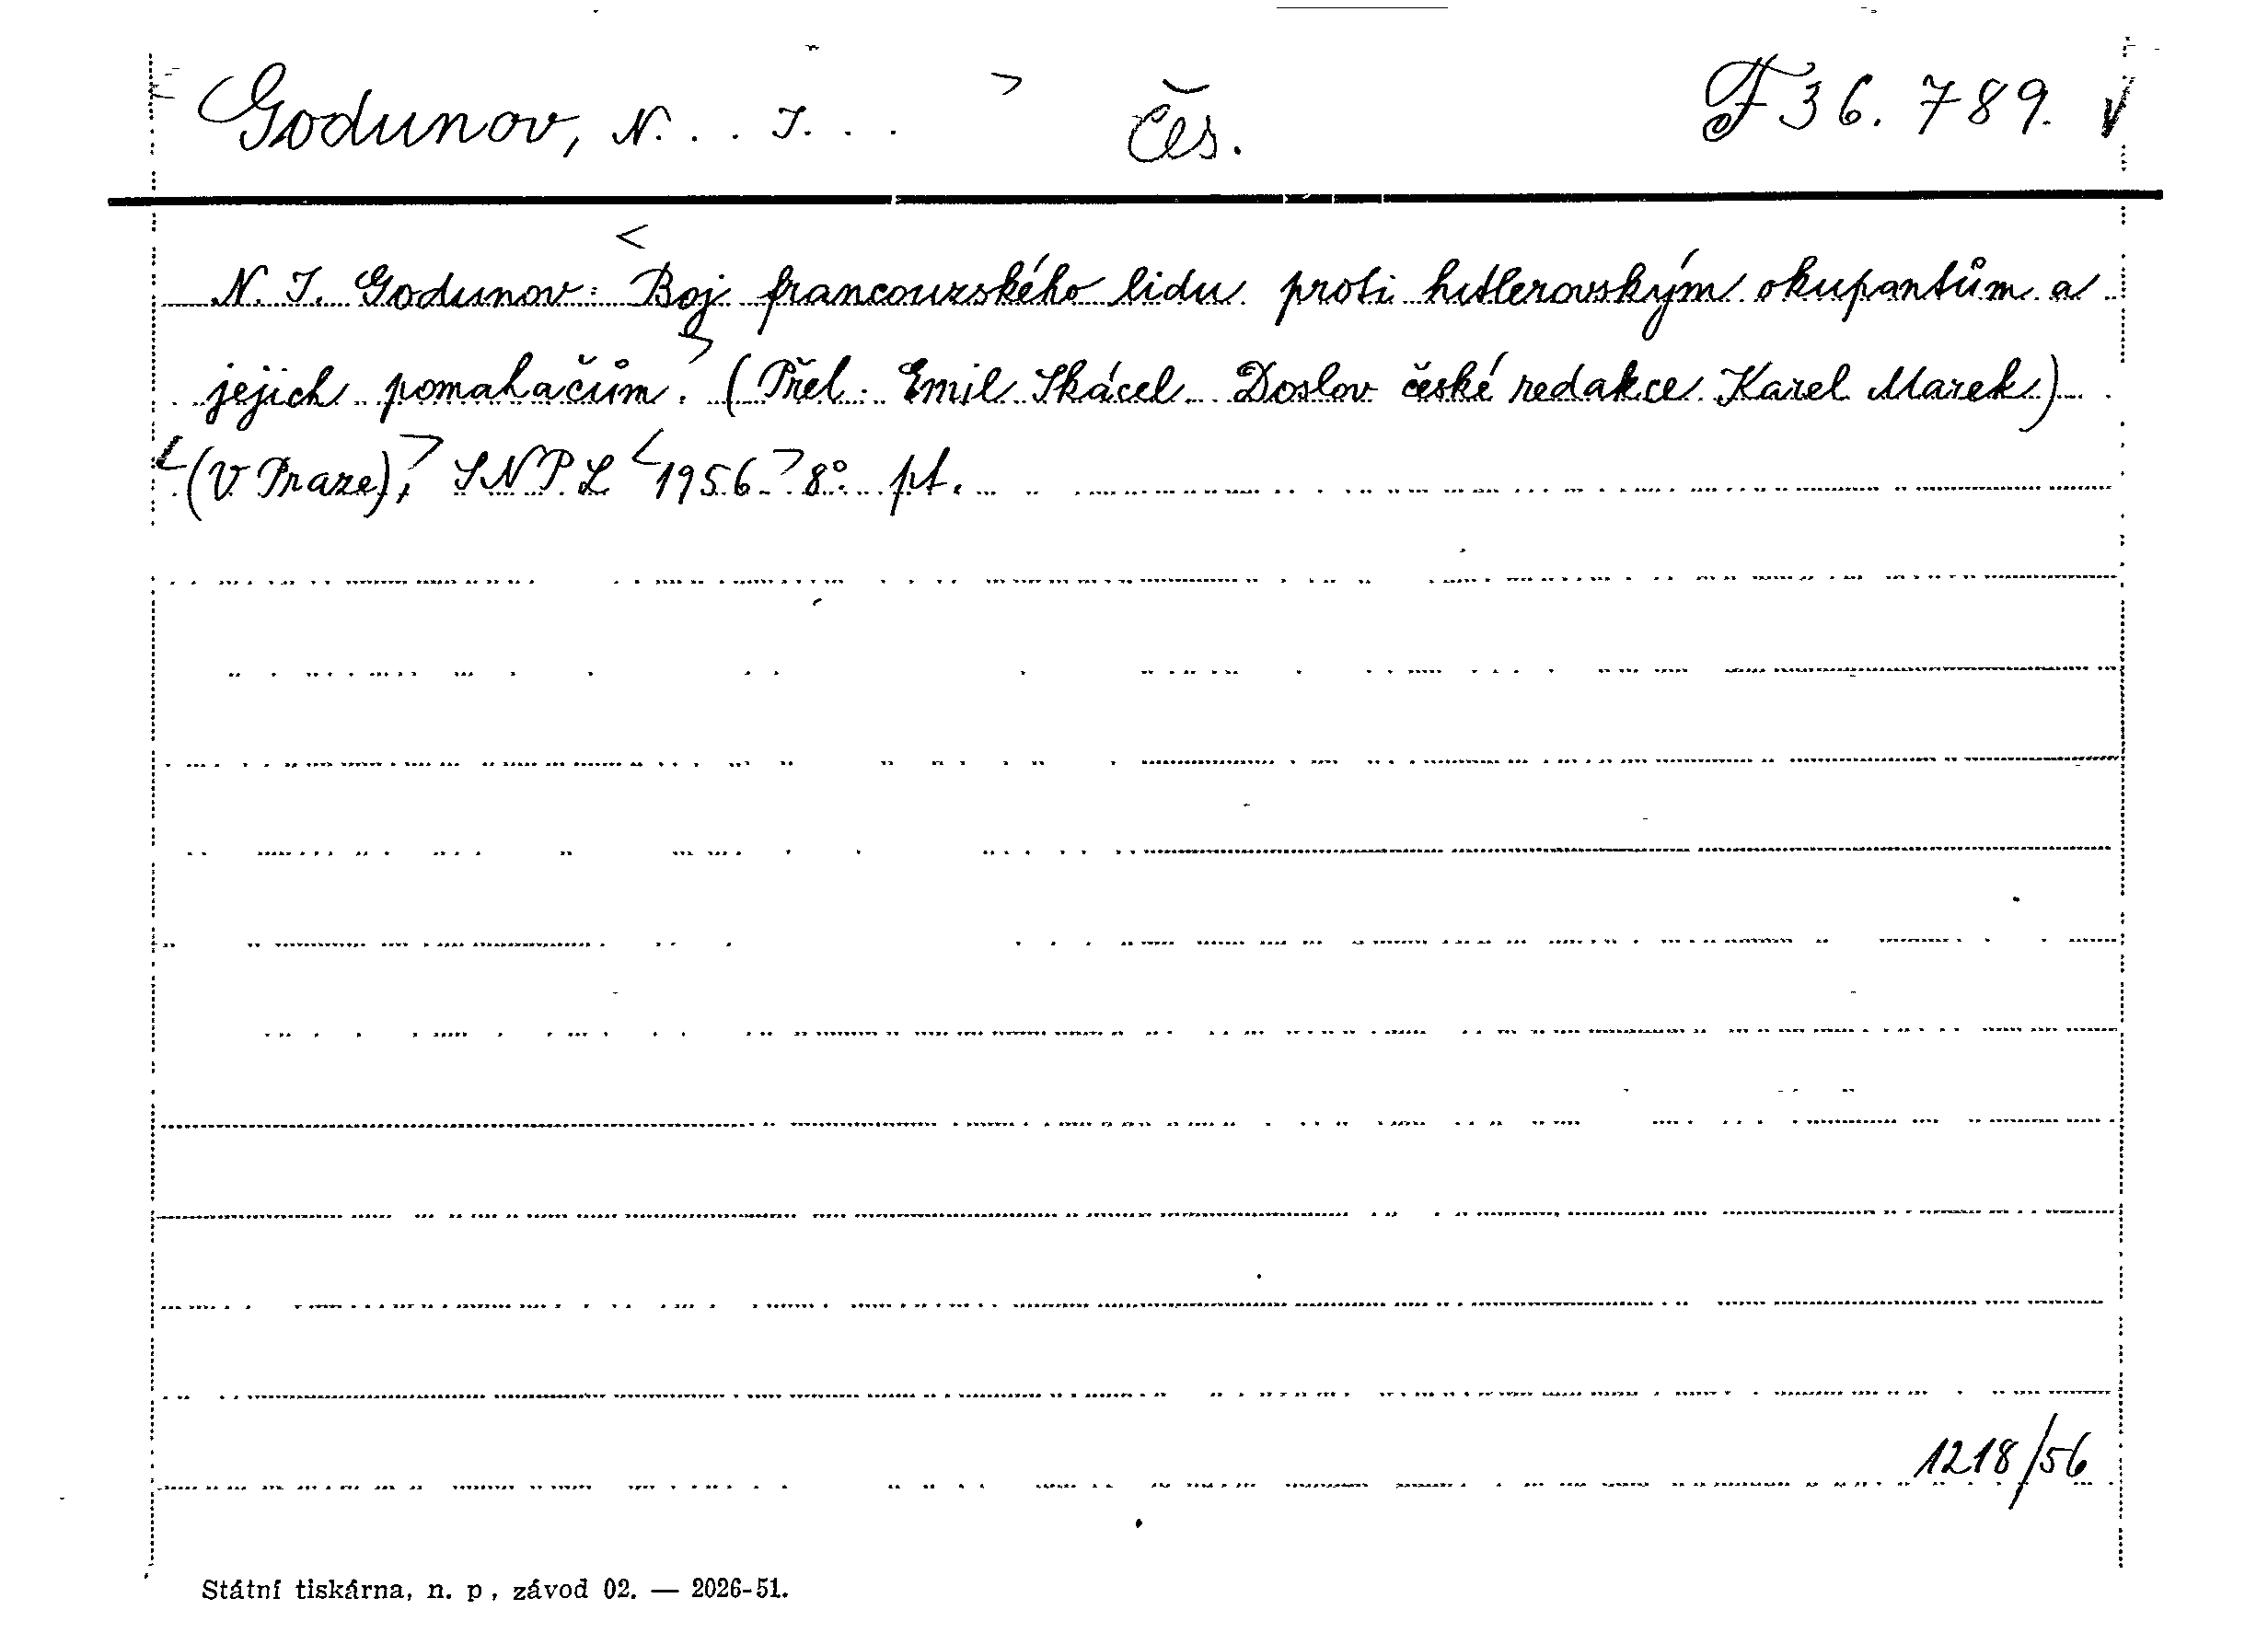 Godunov, N. . . I. . . > Čes. F 36.789. V
<
N. I. Godunov: Boj francouzského lidu proti hitlerovským okupantům a
jejich pomahačům.> (Přel. Emil Skácel. Doslov české redakce Karel Marek)
<(V Praze),> SNPL <1956> 8°. pt.
1218/56
Státní tiskárna, n. p, závod 02. — 2026-51.